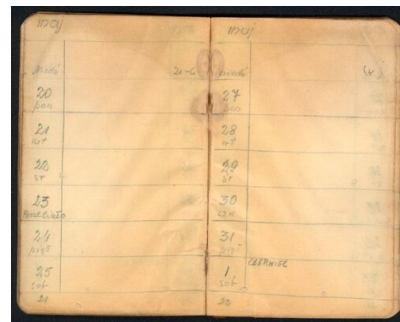 maj
20
pon
21
wt
22
śr
23
24
piąt
25
sob
21
maj
27
pon
28
wt
29
śr
30
czw
31
piąt
CZERWIEC
1
sob
22